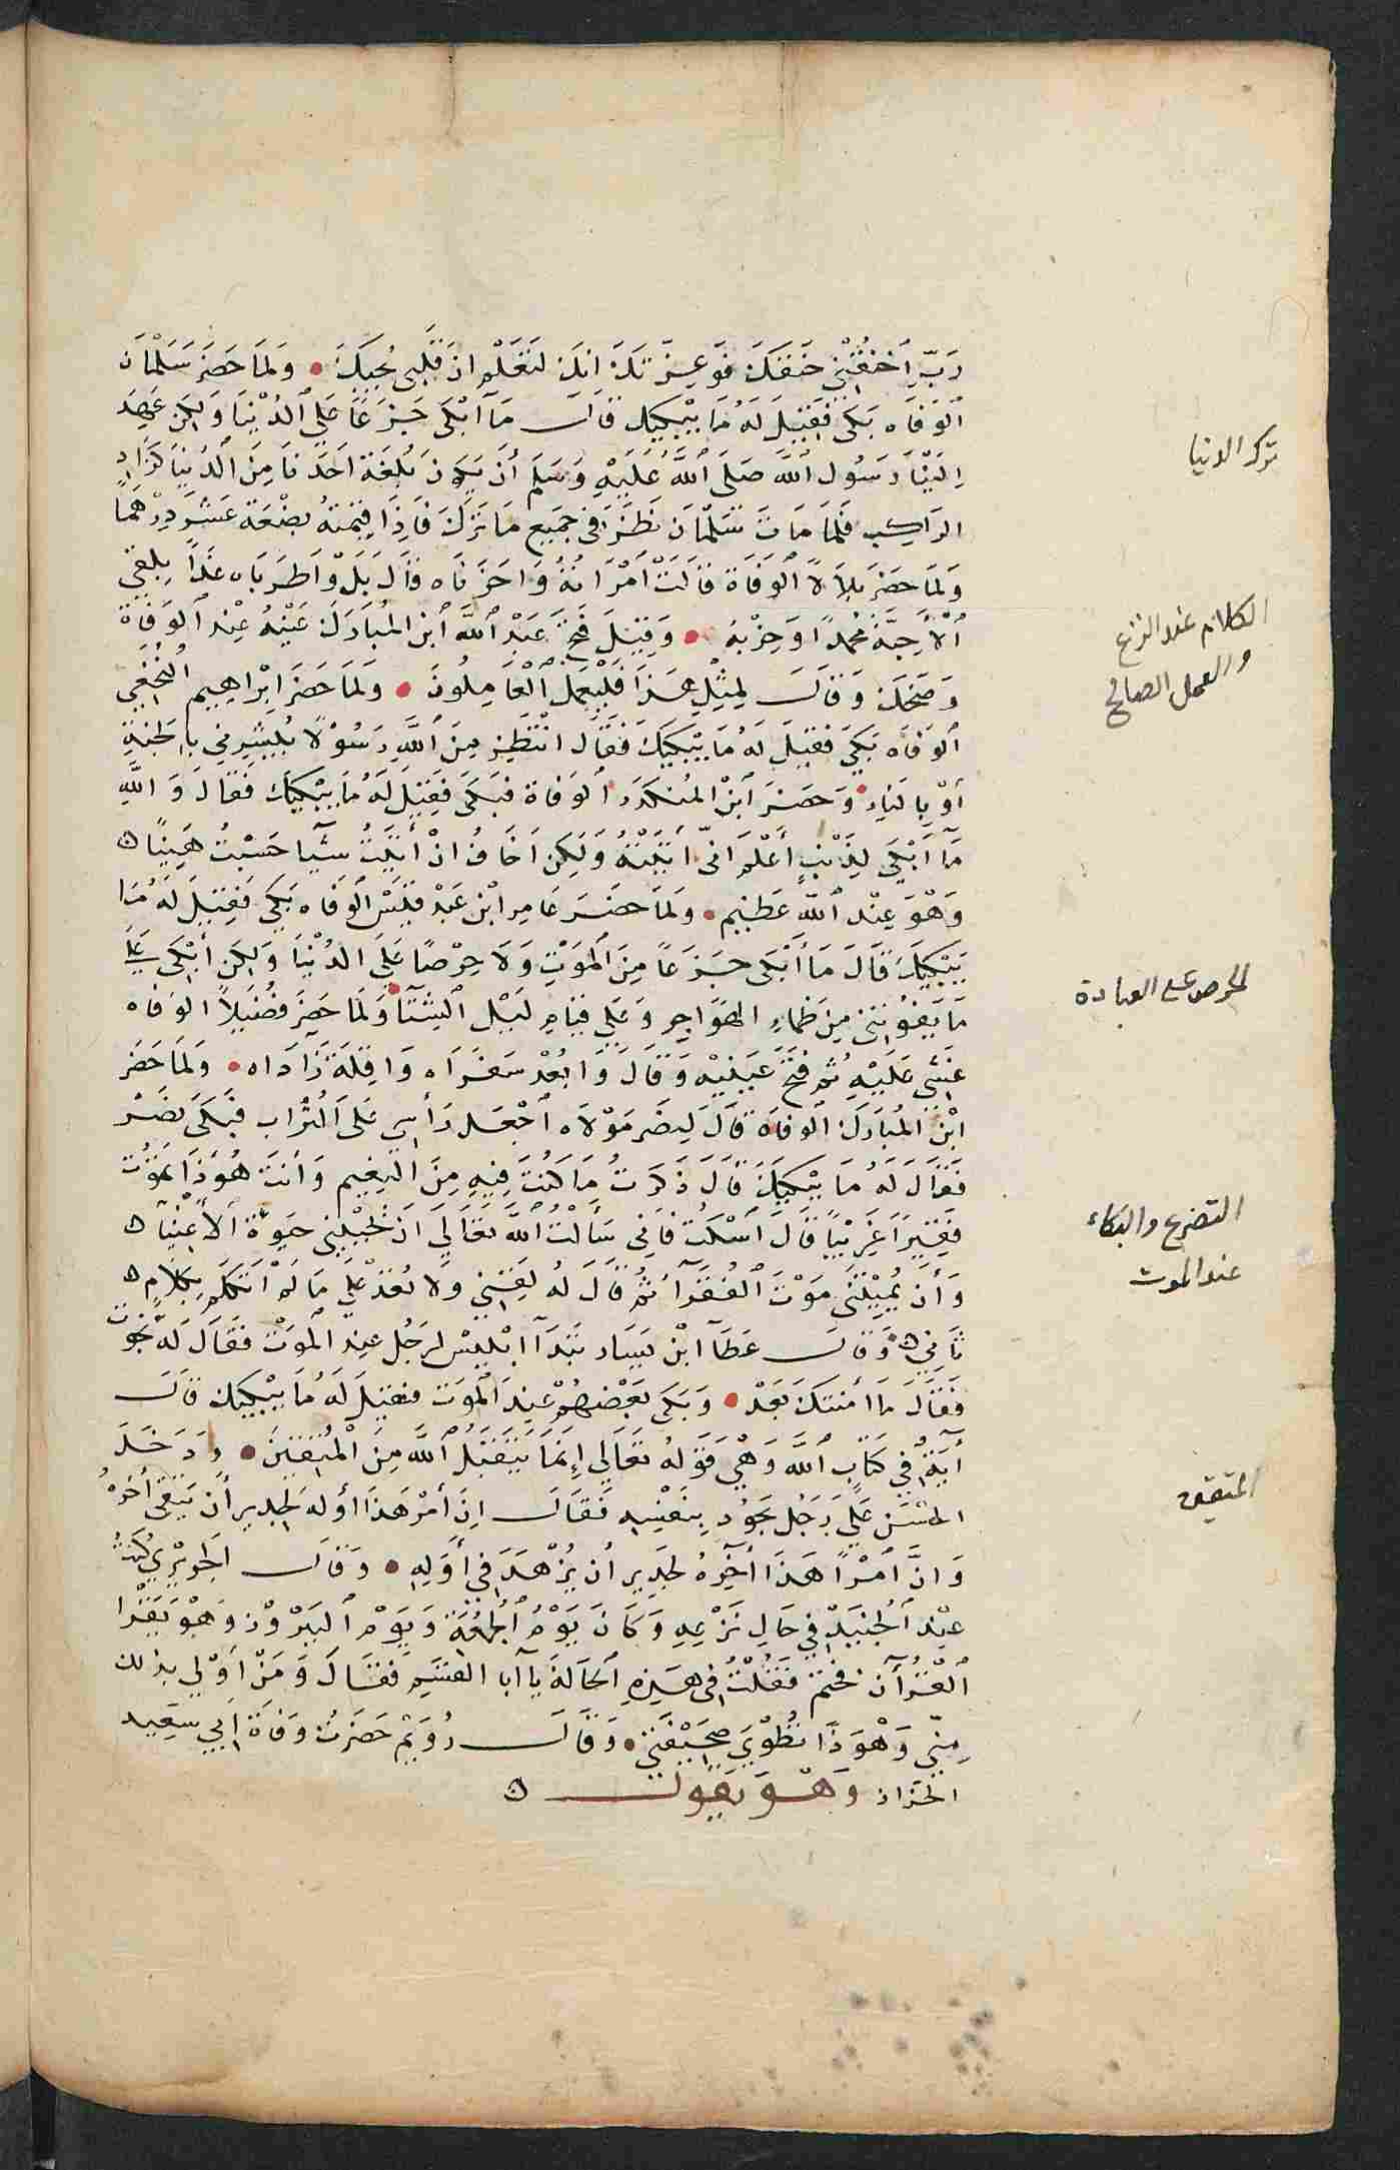 رَبِّ اَخْنُقْنِي خَنَقَكَ فَوَعِزَّتِكَ اِنَكَ لَتَعْلَمُ اِنَ قَلْبِي يُحِبُكَ • وَلَمَا حَضَرَ سَلْمَانَ
اَلوَفَاه بَكَى فَقِيلَ لَهُ مَا يُبْكِيكَ قَالَ مَا أَبْكَى جَزَعًا عَلَى اَلدُنْيَا وَلَكِن عَهِدَ
اِلَيْنَا رَسُول اَللَّه صَلَى اَللَّهُ عَلَيْهِ وَسَلَم أَن يَكوُنَ بُلغَة اَحَدنَا مِنَ اَلدُنْيَا كَزَادِ
الرَاكِب فَلَمَا مَاتَ سَلْمَان نَظَرَ فى جَمِيع مَا تَرَكَ فَاِذَا قِيمَتهُ بضْعَة عَشَر دِرْهَمًا
وَلَمَا حَضَرَ بِلاَلاً اَلوَفَاة قَالَتْ اَمْرَاتهُ وَاحَزَنَاه فقَالَ بَلْ وَاطَرَبَاه غَدًا نِلقَى
اْلأَحِبَّةَ مُحَمدًا وَحِزْبهُ • وَقِيلَ فَتَحَ عَبْد اَللَّه اَبن المُبَارَك عَيْنَهُ عِنْد اَلوَفَاة
وَضَحَكَ وَقَالَ لِمِثْلِ هَذَا فَلْيَعْمَل اْلعَامِلُونَ • وَلَمَا حَضَرَ اِبْرَاهِيم النَخْعِي
اَلوَفَاه بَكَى فَقِيلَ لَهُ مَا يُبْكِيكَ فَقَال انْتَظِر مِنَ اَللَّهِ رَسُوْلاً يُبَشِرنِي بِالجَنةِ
أَوْ بِالنَار • وَحَضَرَ اَبْن المُنكَدَر اَلوَفَاة فبَكَى فَقِيلَ لَهُ مَا يُبْكِيكَ فَقَالَ وَاللَّهِ
مَا أَبْكَى لِذَنْبٍ أَعْلَم اَنّى اَتَيْتُهُ وَلَكِن اَخَافُ اَنْ أَتَيْتُ شَيْئا حَسِبْتُ هَيِنًا ه
وَهْوَ عِنْد اَللَّه عَظِيم • وَلَمَا حَضَرَ عَامِر اَبْن عَبْد قَيْس اَلوَفَاه بَكَى فَقِيلَ لَهُ مَا
يُبْكِيكَ قَالَ مَا أَبْكَى جَزَعًا مِنَ اَلمَوْتِ وَلاَ حِرْصًا عَلَى الدُنْيَا وَلَكِن أَبْكَى عَلَى
مَا يَفُوْتنِى مِن ظَمَاءِ الهَوَاجِر وَعَلَى قِيَامِ لَيْل اَلشِتَآ • وَلَمَا حَضَرَ فُضَيلاً الوَفَاه
غَشِى عَلَيْهِ ثُمَ فَتَحَ عَيَنيْه وَقَالَ وَا بُعْد سَفَرَاه وَا قِلَة زَادَاه • وَلَمَا حَضَر
اَبْن المُبَارَك اَلوفَاة قَالَ لِنَصَر مَوْلاَه اَجْعَل رَأسِي عَلَى اَلتُراب فبَكَى نَصَر
فَقَالَ لَهُ مَا يُبْكِيكَ قَالَ ذَكَرتُ مَا كُنْتَ فِيهِ مِنَ النَعِيم وَأَنتَ هُوَذَا تَموُت
فَقِيرًا غَرِيْبًا قَالَ اَسْكُت فَاِنِى سَأَلْتُ اَللَّه تعَالَي اَن يُحْيِيْنِى حَيوة اَلأَغْنِيَآ ه
وَأَن يُمِيْتَنِى مَوْتَ اَلفُقَرَآ ثُمَ قَالَ لَهُ لَقِنِنِي وَلا تُعْد عَلَي مَا لَمْ اَتَكَلم بِكَلاَمٍ
ثَانِي ه وَقَالَ عَطَآ اَبْن يَسَار تبَدَآ اَبْلِيْس لِرَجُل عِند اَلمَوْت فقَالَ لَهُ نَجَوت
فَقَالَ مَا أَمَنتكَ بَعْد • وَبَكَى بَعْضهُمْ عِندَ اَلمَوت فقيل لَهُ مَا يُبْكِيك قَالَ
أَيَةٌ فى كتَاب اَللَّه وَهْيَ قَوْلهُ تعَالى اِنَمَا يَتَقَبَلُ اَللَّه مِنَ المُتَقِينَ • وَدَخَلَ
الحَسَن عَلَى رَجُل يَجُوْد بِنَفْسِهِ فَقَالَ اِنَ أَمْر هَذَا أوله لجدير أَن يَتقَى أخرهُ
وَانَّ اَمْرًا هَذَا أخِرهُ لجدِير أن يُزْهَدَ فى أَوَلِهِ • وَقَالَ الجريْري كُنتُ
عِنْد اَلجُنَيْدِ فِي حَال نَزْعِهِ وَكَانَ يَوْمُ اَلجُمعَة وَيَوْم اَلنَيرُوْز وَهْوَ يَقرَا
اَلقُرأَن فختم فَقُلْتُ فى هَذِهِ اَلحَالَة يَا اَبا القسَم فَقَالَ وَمَنْ أَوْلى بذلك
مِنّي وَهْوَ ذَا تُطْوَي صَحِيْفَتِي • وَقَالَ رُوَيْم حَضَرتُ وَفَاة اَبِي سَعِيد
الخرَاز وَهْوَ يقول ه
ترك الدنيا
الكلام عند النزع
والعمل الصالح
الحرص على العبادة
التضرع والبكاء
عند الموت
المتقين